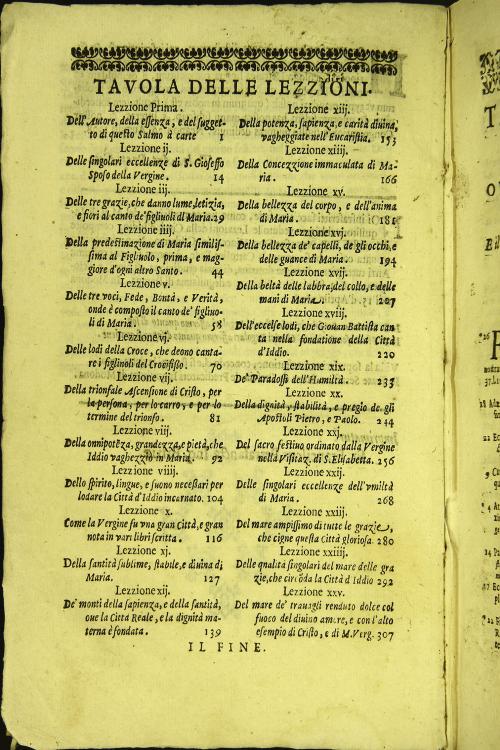 TAVOLA DELLE LEZZIONI.
Lezzione Prima.
Dell'Autore, della essenza, e del sugget-
to di questo Salmo à carte 1
Lezzione ij.
Delle singolari eccellenze di S. Gioseffo
Sposo della Vergine. 14
Lezzione iij.
Delle tre grazie, che danno lume, letizia,
e fiori al canto de' figliuoli dl Maria. 29
Lezzione iiij.
Della predestinazione di Maria similis-
sima al Figliuolo, prima, e mag-
giore d'ogni altro Santo. 44
Lezzione v.
Delle tre voci, Fede, Bontà, e Verità,
onde è composto il canto de' figliuo-
li di Maria. 58
Lezzione vj.
Delle lodi della Croce, che deono canta-
re i figlinoli del Crocifisso. 70
Lezzione vij.
Della trionfale Ascensione di Cristo, per
la persona, per lo carro, e per lo
termine del trionfo. 81
Lezzione viij.
Della onnipotẽza, grandezza, e pietà, che
Iddio vagheggiò in Maria. 92
Lezzione viiij.
Dello spirito, lingue, e suono necessari per
lodare la Città d'Iddio incarnato. 104
Lezzione x.
Come la Vergine fu vna gran Città, e gran
nota in vari libri scritta. 116
Lezzione xj.
Della santità sublime, stabile, e diuina di
Maria. 127
Lezzione xij.
De' monti della sapienza, e della santità,
oue la Città Reale, e la dignità ma-
terna è fondata. 139
Lezzione xiij.
Della potenza, sapienza, e carità diuina,
vagheggiate nell'Eucaristia. 153
Lezzione xiiij.
Della Concezzione immaculata di Ma-
ria. 166
Lezzione xv.
Della bellezza del corpo, e dell'anima
di Maria. 181
Lezzione xvj.
Della bellezza de' capelli, de gli occhi, e
delle guance di Maria. 194
Lezzione xvij.
Della beltà delle labbra, del collo, e delle
mani di Maria. 207
Lezzione xviij.
Dell'eccelse lodi, che Giouan Battista can
ta nella fondatione della Città
d'Iddio. 220
Lezzione xix.
De' Paradossi dell'Humiltà. 233
Lezzione xx.
Della dignità, stabilità, e pregio de gli
Apostoli Pietro, e Paolo. 244
Lezzione xxj.
Del sacro festiuo ordinato dalla Vergine
nella Visitaz. di S. Elisabetta. 256
Lezzione xxij.
Delle singolari eccellenze dell'vmiltà
di Maria. 268
Lezzione xxiij.
Del mare ampissimo di tutte le grazie,
che cigne questa Città gloriosa. 280
Lezzione xxiiij.
Delle qualità singolari del mare delle gra
zie, che circõda la Città d'Iddio 292
Lezzione xxv.
Del mare de' trauagli renduto dolce col
fuoco del diuino amore, e con l'alto
esempio di Cristo, e di M. Verg. 307
IL FINE.